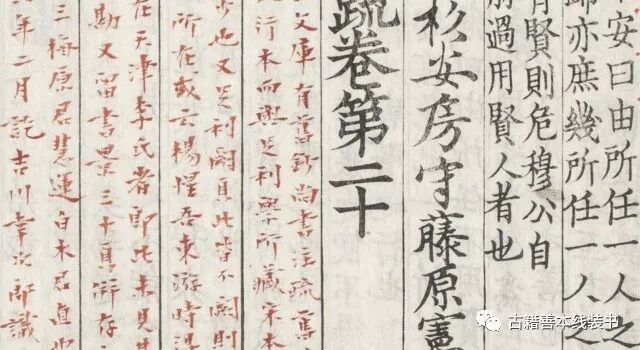 安曰由所任一人之
歸亦庶幾所任一人之
有賢則危穆公自
前過用賢人者也
杉安房守藤原憲
疏卷第二十
文庫有舊鈔尚書注疏舊
行本而與足利學所藏宋本
少也又足利闕頁此皆不闕則
所在或云楊惺吾東游時
在天津李氏者即此未見
勘又留書景三十頁存
三梅原君慧運白木君直
年二月記吉川幸次郎識
古籍善本线装书